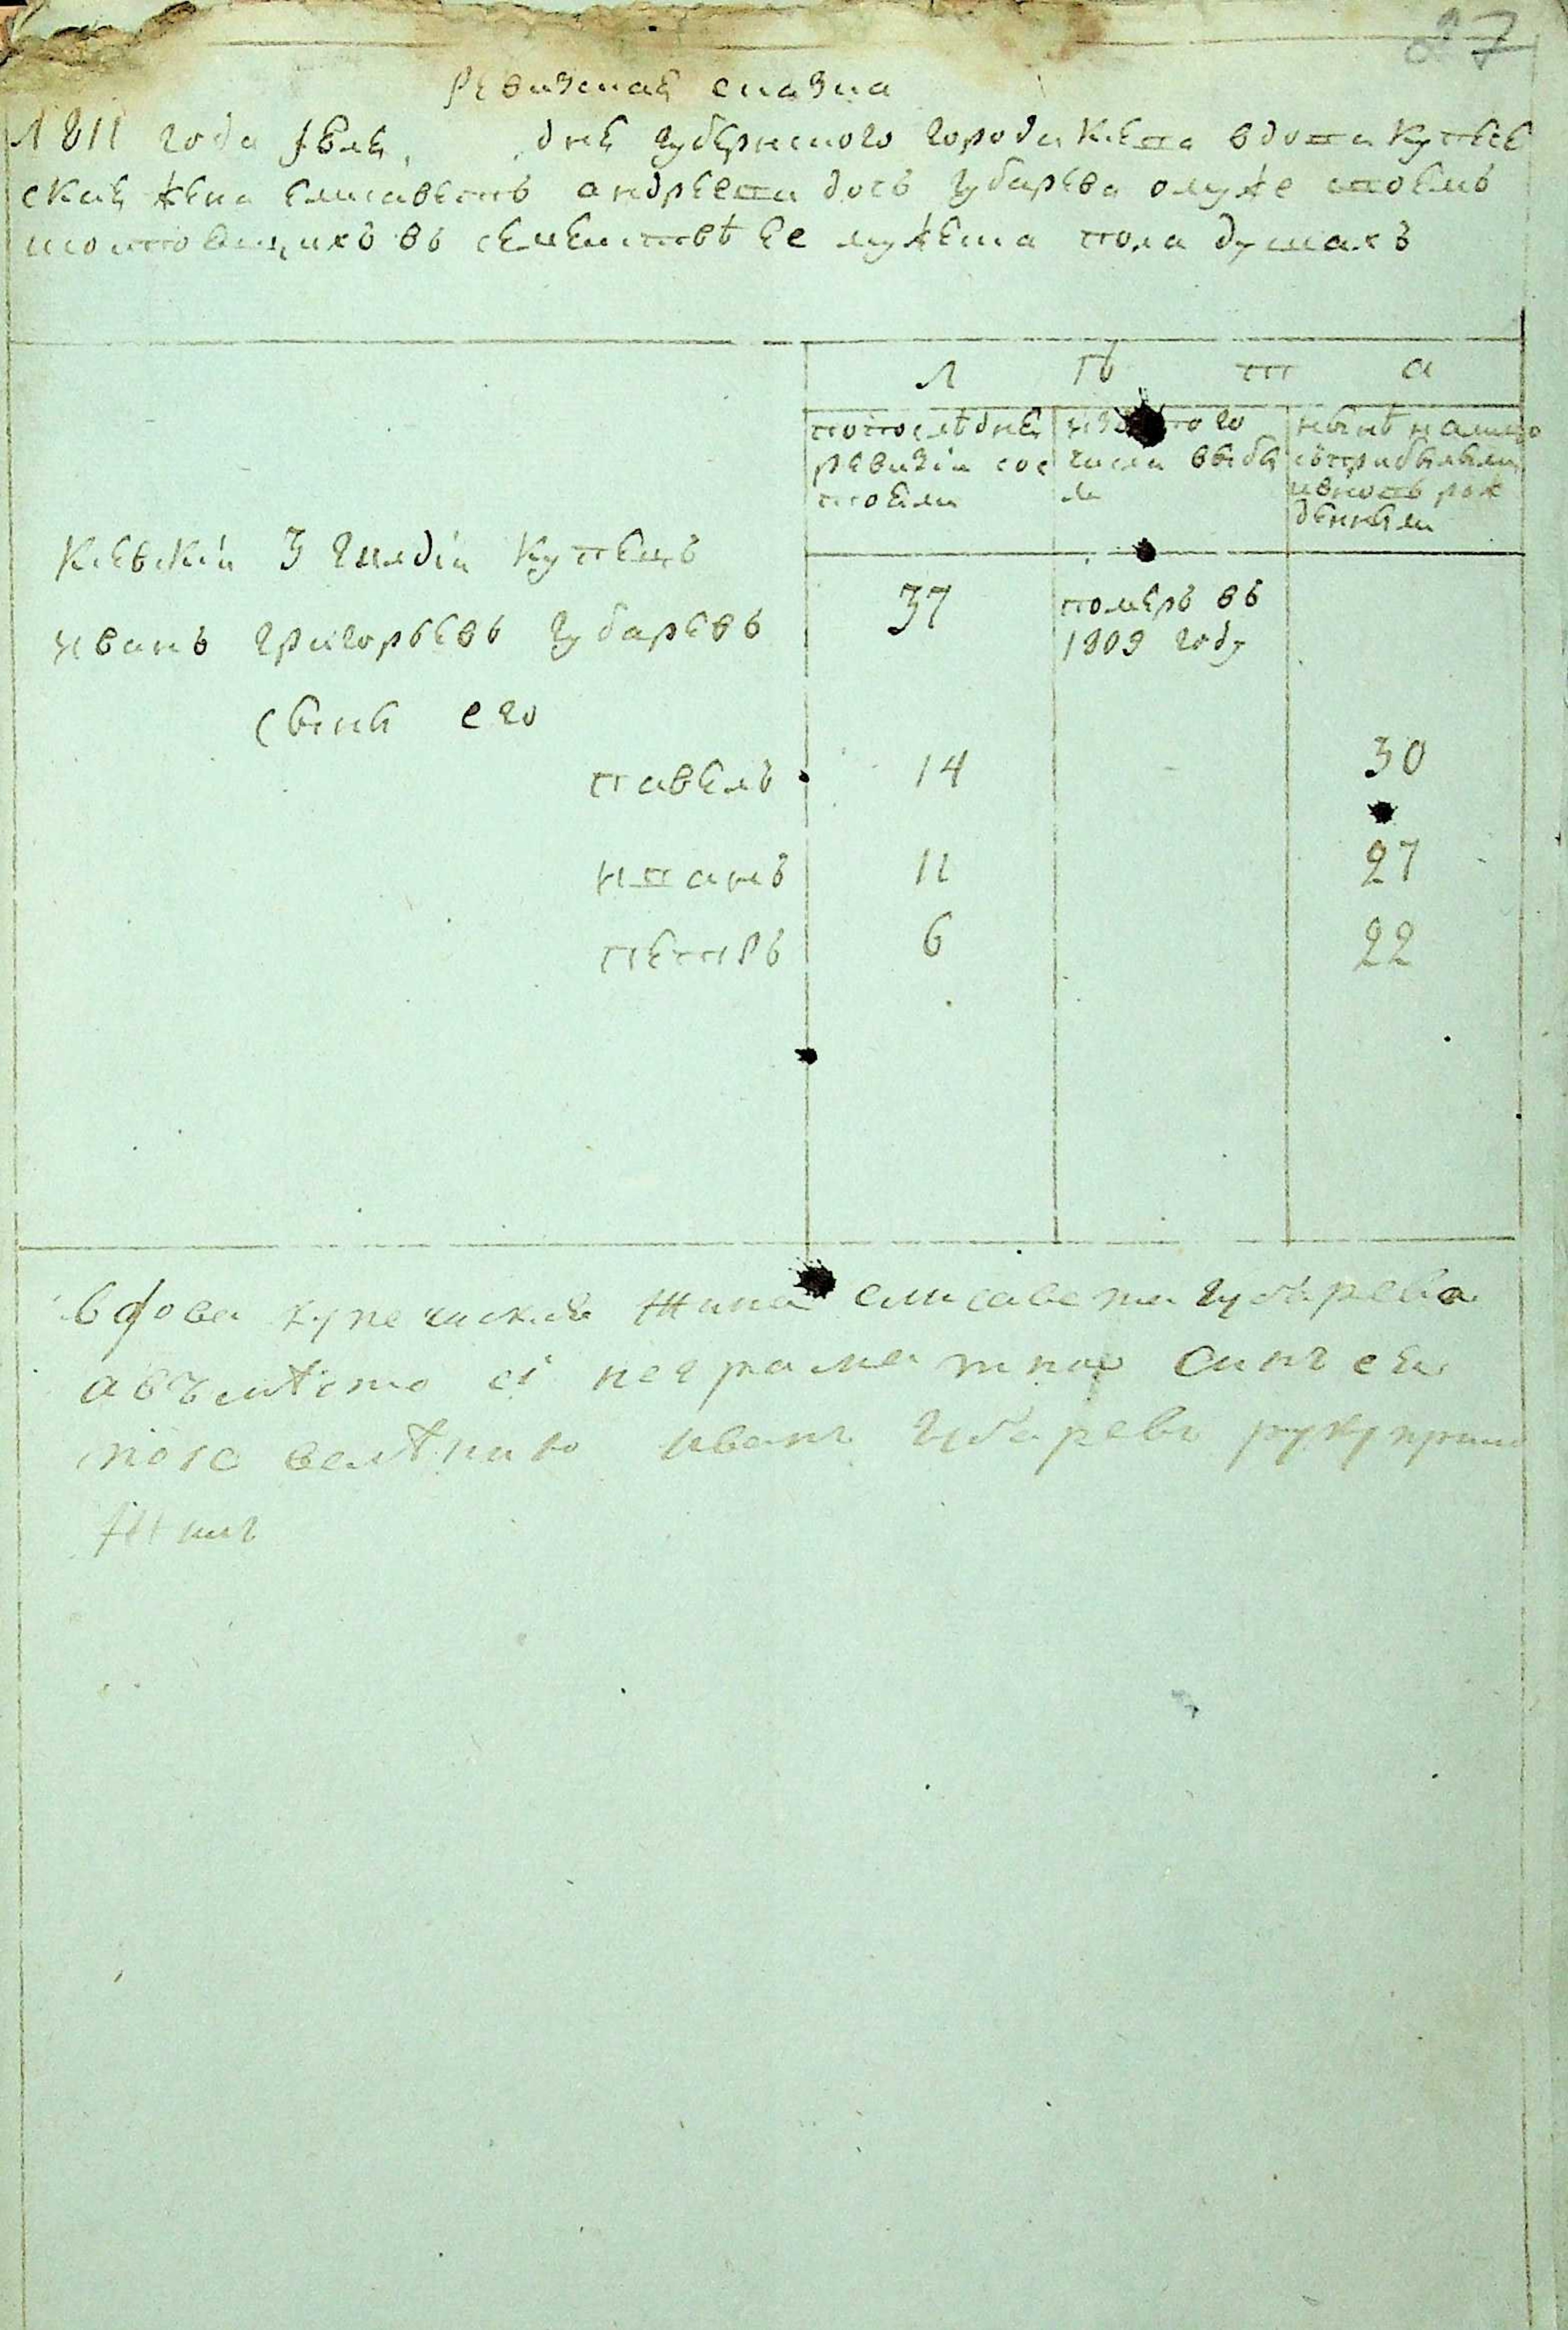 27
Ревизская сказка
1811 года июля дня губернскаго города Киева вдова купече
ская жена елисаветъ андреева дочь губарева о муже моемъ
и состоящихъ въ семействѣ ее мужеска пола душахъ
Л ѣ т а
по последней ревизiи состояли
изъ того числа выбыли
нынѣ на лицо съ прибылыми и вновь рожденными
Кiевскiй 3 гилдiи купецъ
иванъ григорьевъ губаревъ 37 померъ въ 1809 году
сыны его
павелъ 14 30
иванъ 11 27
петръ 6 22
вдова купеческая жина елисавета губарева
а въмѣсто еi неграматной синъ еи
по ее велѣнию иванъ губаревъ руку прило
жилъ